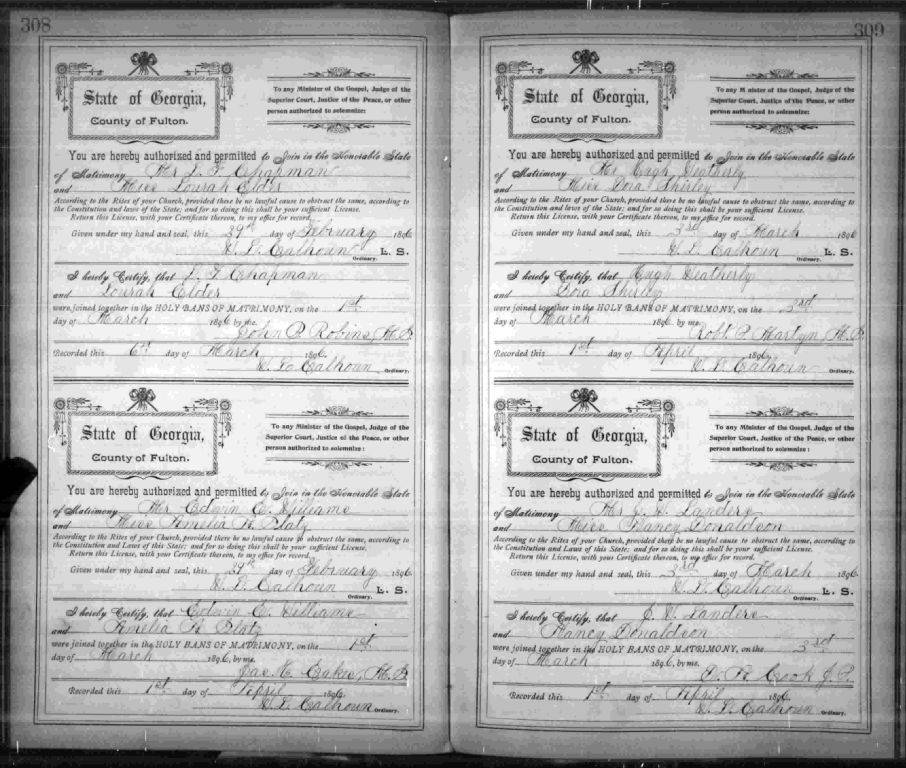 308
State of Georgia,
County of Fulton.
To any Minister of the Gospel, Judge of the
Superior Court, Justice of the Peace, or other
person authorized to solemnize:
You are hereby authorized and permitted to Join in the Honorable State
of Matrimony Mr Chapman
and Miss Lourah Elder
According to the Rites of your Church, provided there be no lawful cause to obstruct the same, according to
the Constitution and laws of the State; and for so doing this shall be your sufficient License.
Return this License, with your Certificate thereon, to my office for record.
Given under my hand and seal, this 29th day of February 1896
W. L. Calhoun L. S.
Ordinary.
I hereby Certify, that Chapman
and Lourah Elder
were joined together in the HOLY BANS OF MATRIMONY, on the 1st
day of March 1896 by me.
John P. Robins, M. G.
Recorded this 6th day of March 1896.
W. L. Calhoun Ordinary.
State of Georgia,
County of Fulton.
To any Minister of the Gospel, Judge of the
Superior Court, Justice of the Peace, or other
person authorized to solemnize:
You are hereby authorized and permitted to Join in the Honorable State
of Matrimony Mr Edwin E. Williams
and Miss Amelia Platz
According to the Rites of your Church, provided there be no lawful cause to obstruct the same, according to
the Constitution and Laws of this State; and for so doing this shall be your sufficient License.
Return this License, with your Certificate thereon, to my office for record.
Given under my hand and seal, this 29th day of February 1896
W. L. Calhoun L. S.
Ordinary.
I hereby Certify, that Edwin E. Williams
and Amelia Platz
were joined together in the HOLY BANS OF MATRIMONY, on the 1st
day of March 1896, by me.
Jas. M. G.
Recorded this 1st day of April 1896.
W. L. Calhoun Ordinary.
309
State of Georgia,
County of Fulton.
To any Minister of the Gospel, Judge of the
Superior Court, Justice of the Peace, or other
person authorized to solemnize:
You are hereby authorized and permitted to Join in the Honorable State
of Matrimony Mr Hugh Weatherly
and Miss Dora Shirley
According to the Rites of your Church, provided there be no lawful cause to obstruct the same, according to
the Constitution and laws of the State; and for so doing this shall be your sufficient License.
Return this License, with your Certificate thereon, to my office for record.
Given under my hand and seal, this 3rd day of March 1896
W. L. Calhoun L. S.
Ordinary.
I hereby Certify, that Hugh Weatherly
and Dora Shirley
were joined together in the HOLY BANS OF MATRIMONY, on the 3rd
day of March 1896 by me.
Robt. P. Martyn, M. G.
Recorded this 1st day of April 1896.
W. L. Calhoun Ordinary.
State of Georgia,
County of Fulton.
To any Minister of the Gospel, Judge of the
Superior Court, Justice of the Peace, or other
person authorized to solemnize:
You are hereby authorized and permitted to Join in the Honorable State
of Matrimony Mr Landers
and Miss Nancy Donaldson
According to the Rites of your Church, provided there be no lawful cause to obstruct the same, according to
the Constitution and Laws of this State; and for so doing this shall be your sufficient License.
Return this License, with your Certificate thereon, to my office for record.
Given under my hand and seal, this 3rd day of March 1896
W. L. Calhoun L. S.
Ordinary.
I hereby Certify, that Landers
and Nancy Donaldson
were joined together in the HOLY BANS OF MATRIMONY, on the 3rd
day of March 1896, by me.
Cook J. P.
Recorded this 1st day of April 1896.
W. L. Calhoun Ordinary.